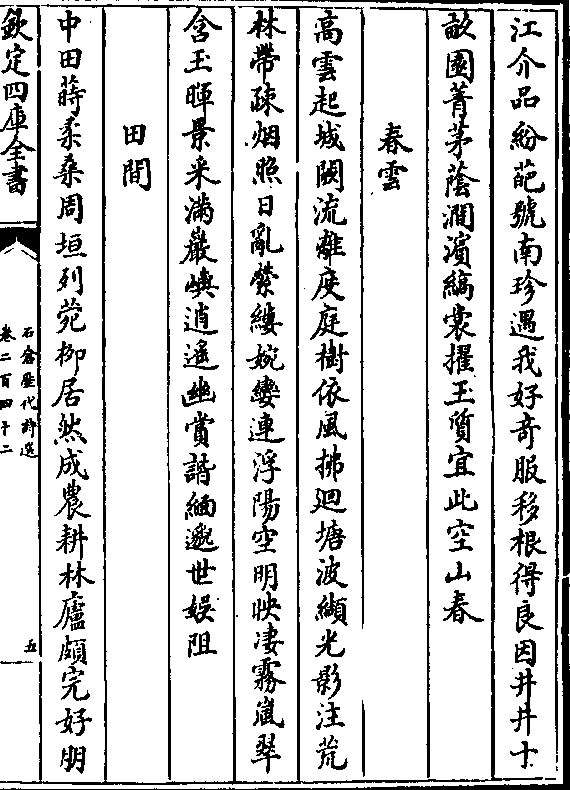 江介品紛葩號南珍遇我好奇服移根得良因井井十
畝園菁茅蔭澗濱縞裳擢玉質宜此空山春
春雲
高雲起城闕流離度庭樹依風拂迴塘波纈光影注荒
林帶疎烟照日亂縈縷婉孌連浮陽空明映淒霧嵐翠
含玉暉景采滿巖嶼逍遙幽賞諧緬邈世娱阻
田間
中田蒔柔桑周垣列苑栁居然成農耕林廬頗完好朋
欽定四庫全書
石倉歷代詩選
卷二百四十二
五